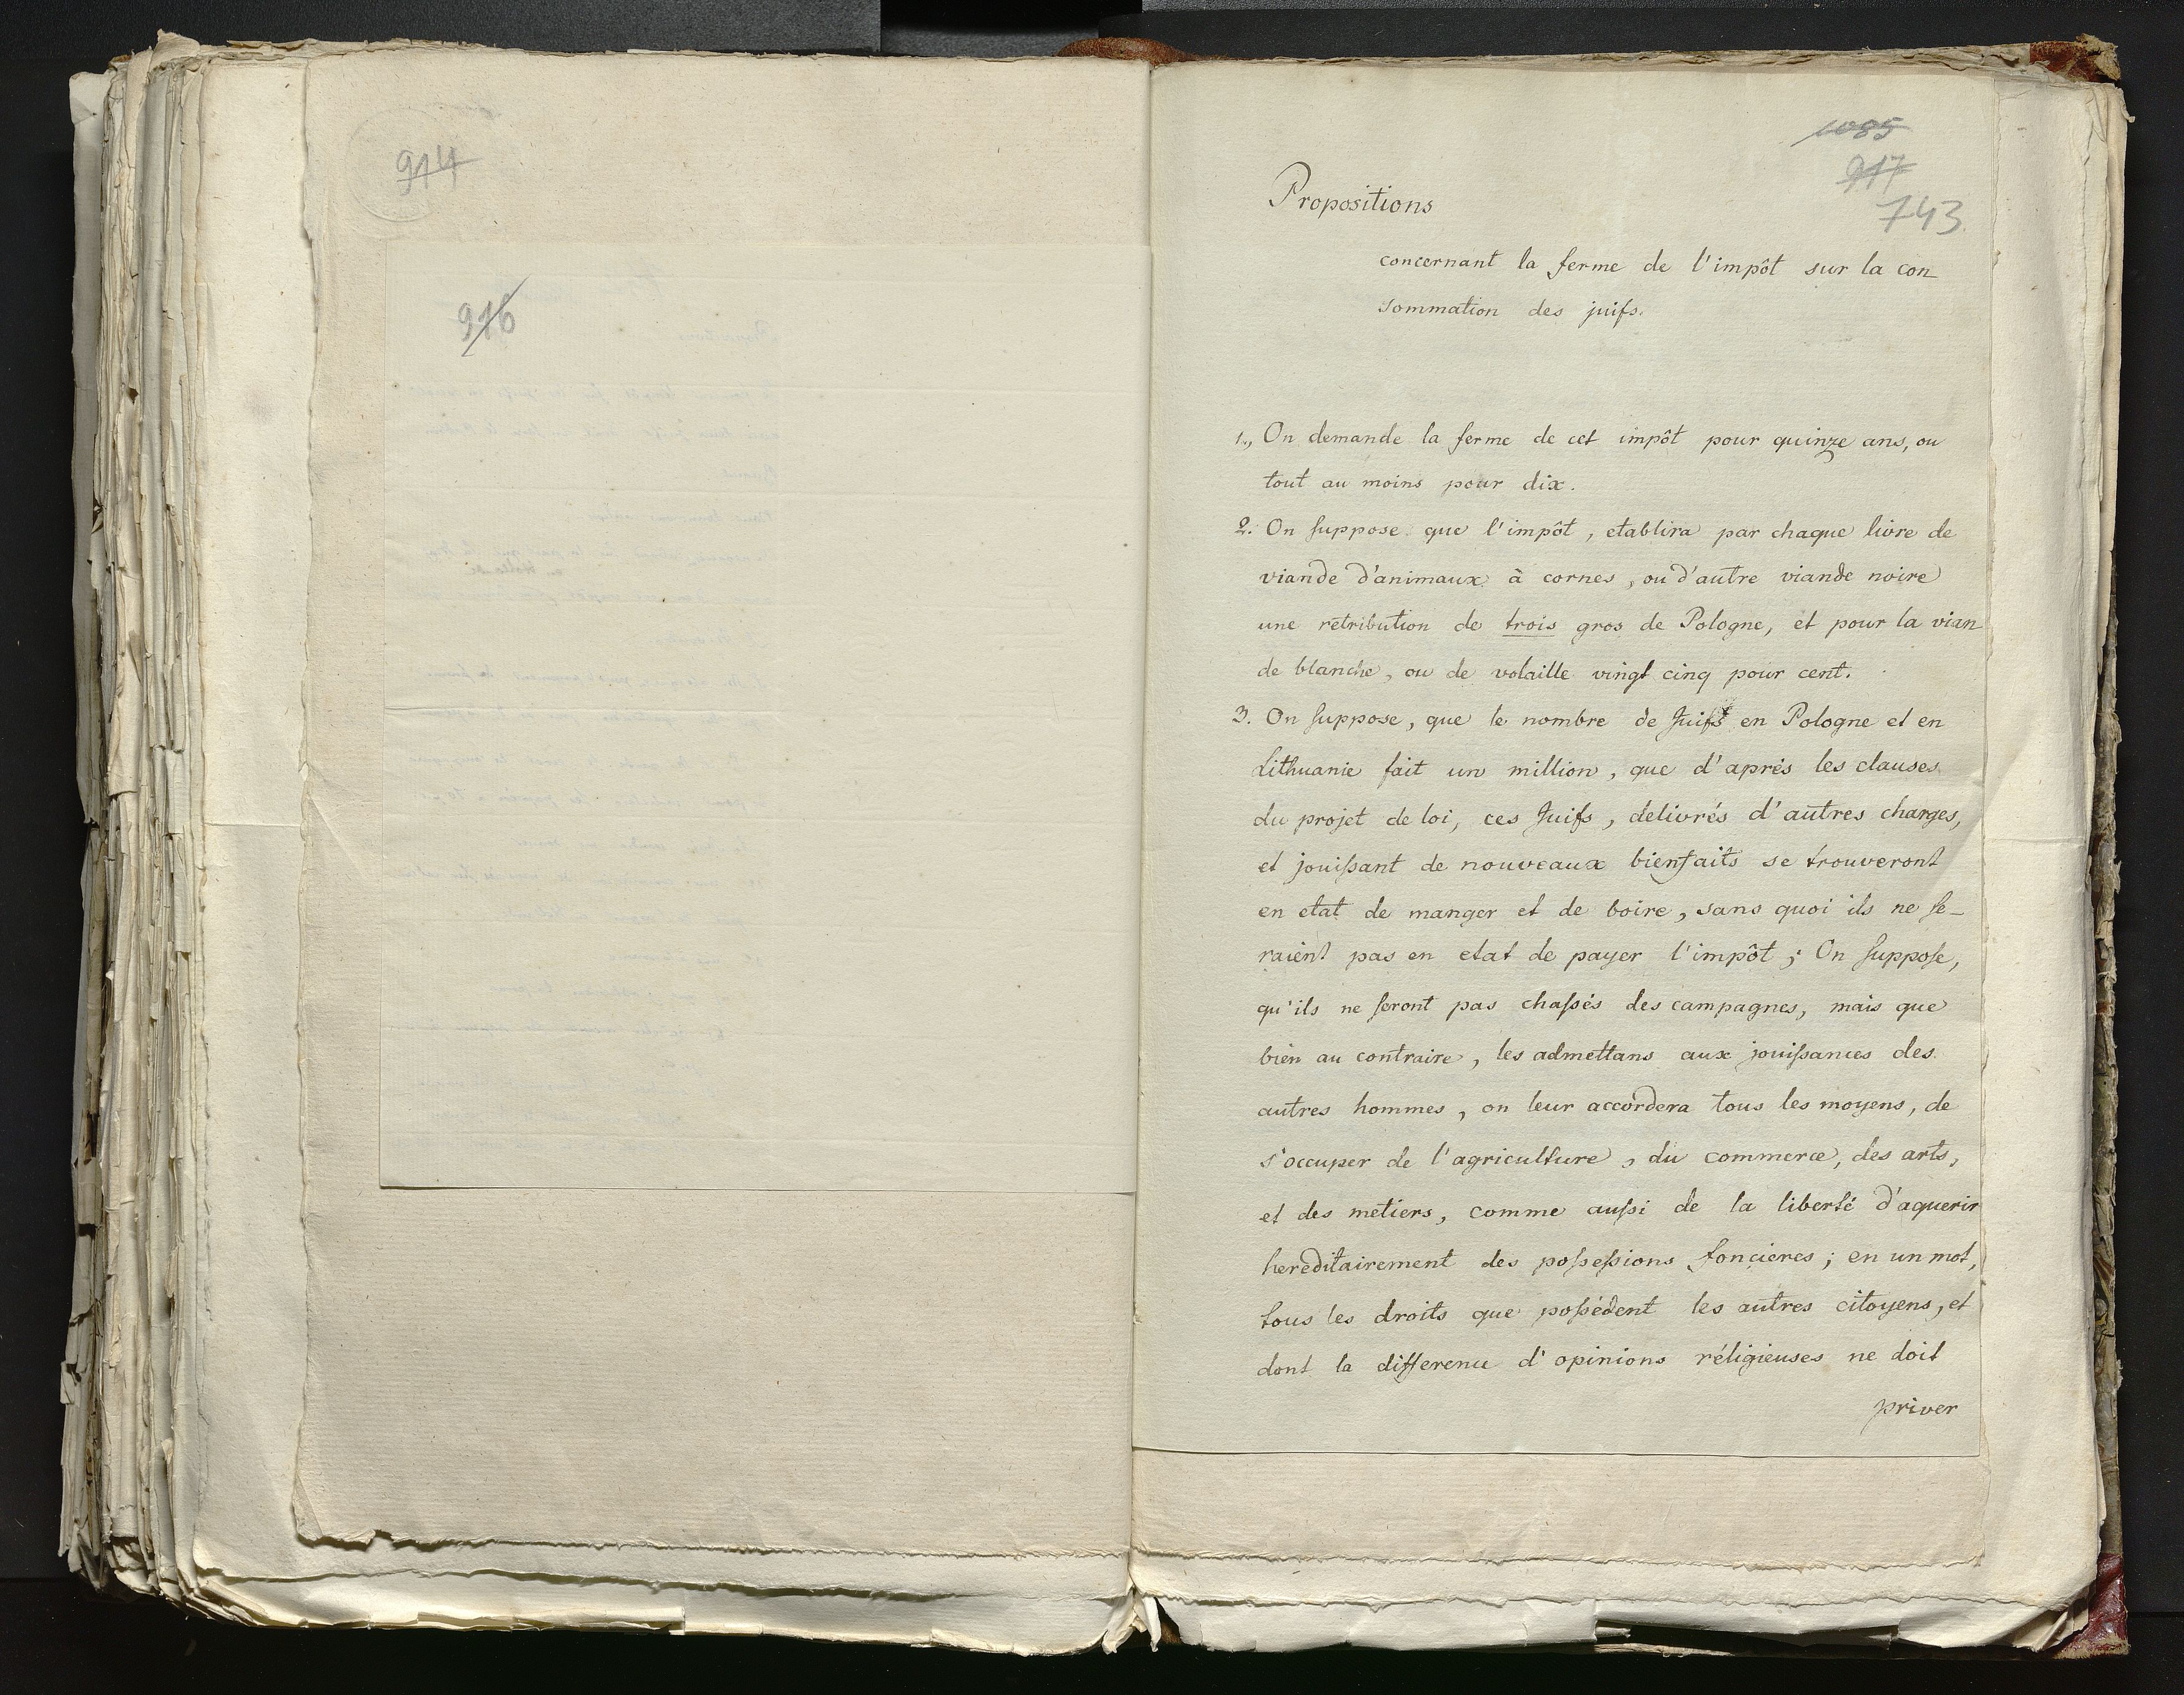 914
916
1085
917
743
Propositions
concernant la ferme de l'impôt sur la con
sommation des juifs.
1., On demande la ferme de cet impôt pour quinze ans, ou
tout au moins pour dix.
2. On suppose que l'impôt, etablira par chaque livre de
viande d'animaux à cornes, ou d'autre viande noire
une rétribution de trois gros de Pologne, et pour la vian
de blanche, ou de volaille vingt cinq pour cent.
3. On suppose, que le nombre de Juifs en Pologne et en
Lithuanie fait un million, que d'aprés les clauses
du projet de loi, ces Juifs, delivrés d'autres charges,
et jouissant de nouveaux bienfaits se trouveront
en etat de manger et de boire, sans quoi ils ne se-
raient pas en etat de payer l'impôt; On suppose,
qu'ils ne seront pas chassés des campagnes, mais que
bien au contraire, les admettans aux jouissances des
autres hommes, on leur accordera tous les moyens, de
s'occuper de l'agriculture, du commerce, des arts,
et des metiers, comme aussi de la liberté d'aquerir
hereditairement des possessions foncieres; en un mot,
tous les droits que possédent les autres citoyens, et
dont la difference d'opinions réligieuses ne doit
priver